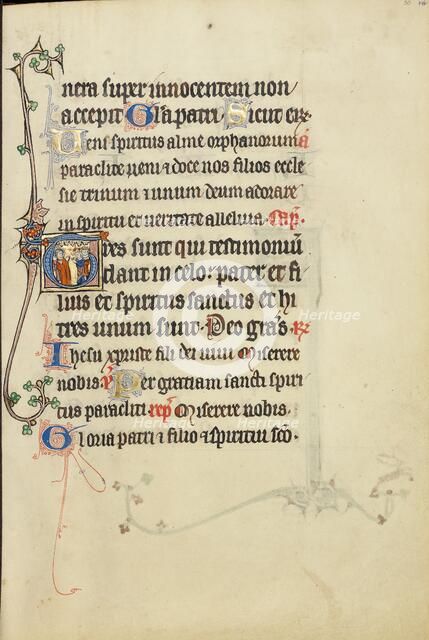 nera super innocentem non
accepit Gl'a patri. Sicut er̃.
Veni spiritus alme orphanorum a
paraclite ueni & doce nos filios eccle
sie trinum & unum deum adorare
in spiritu et ueritate alleluia. Cap̃.
Tres sunt qui testimoniũ
dant in celo. pater et fi
lius et spiritus sanctus et hi
tres unum sunt. Deo grãs. R̃
Ihesu xpriste fili dei uiui Miserere
nobis. ℣ Per gratiam sancti spiri
tus paracliti. resp̃ Miserere nobis.
Gloria patri & filio & spiritui sc̃o.
Heritage
Heritage
Heritage
Heritage
Heritage
Heritage